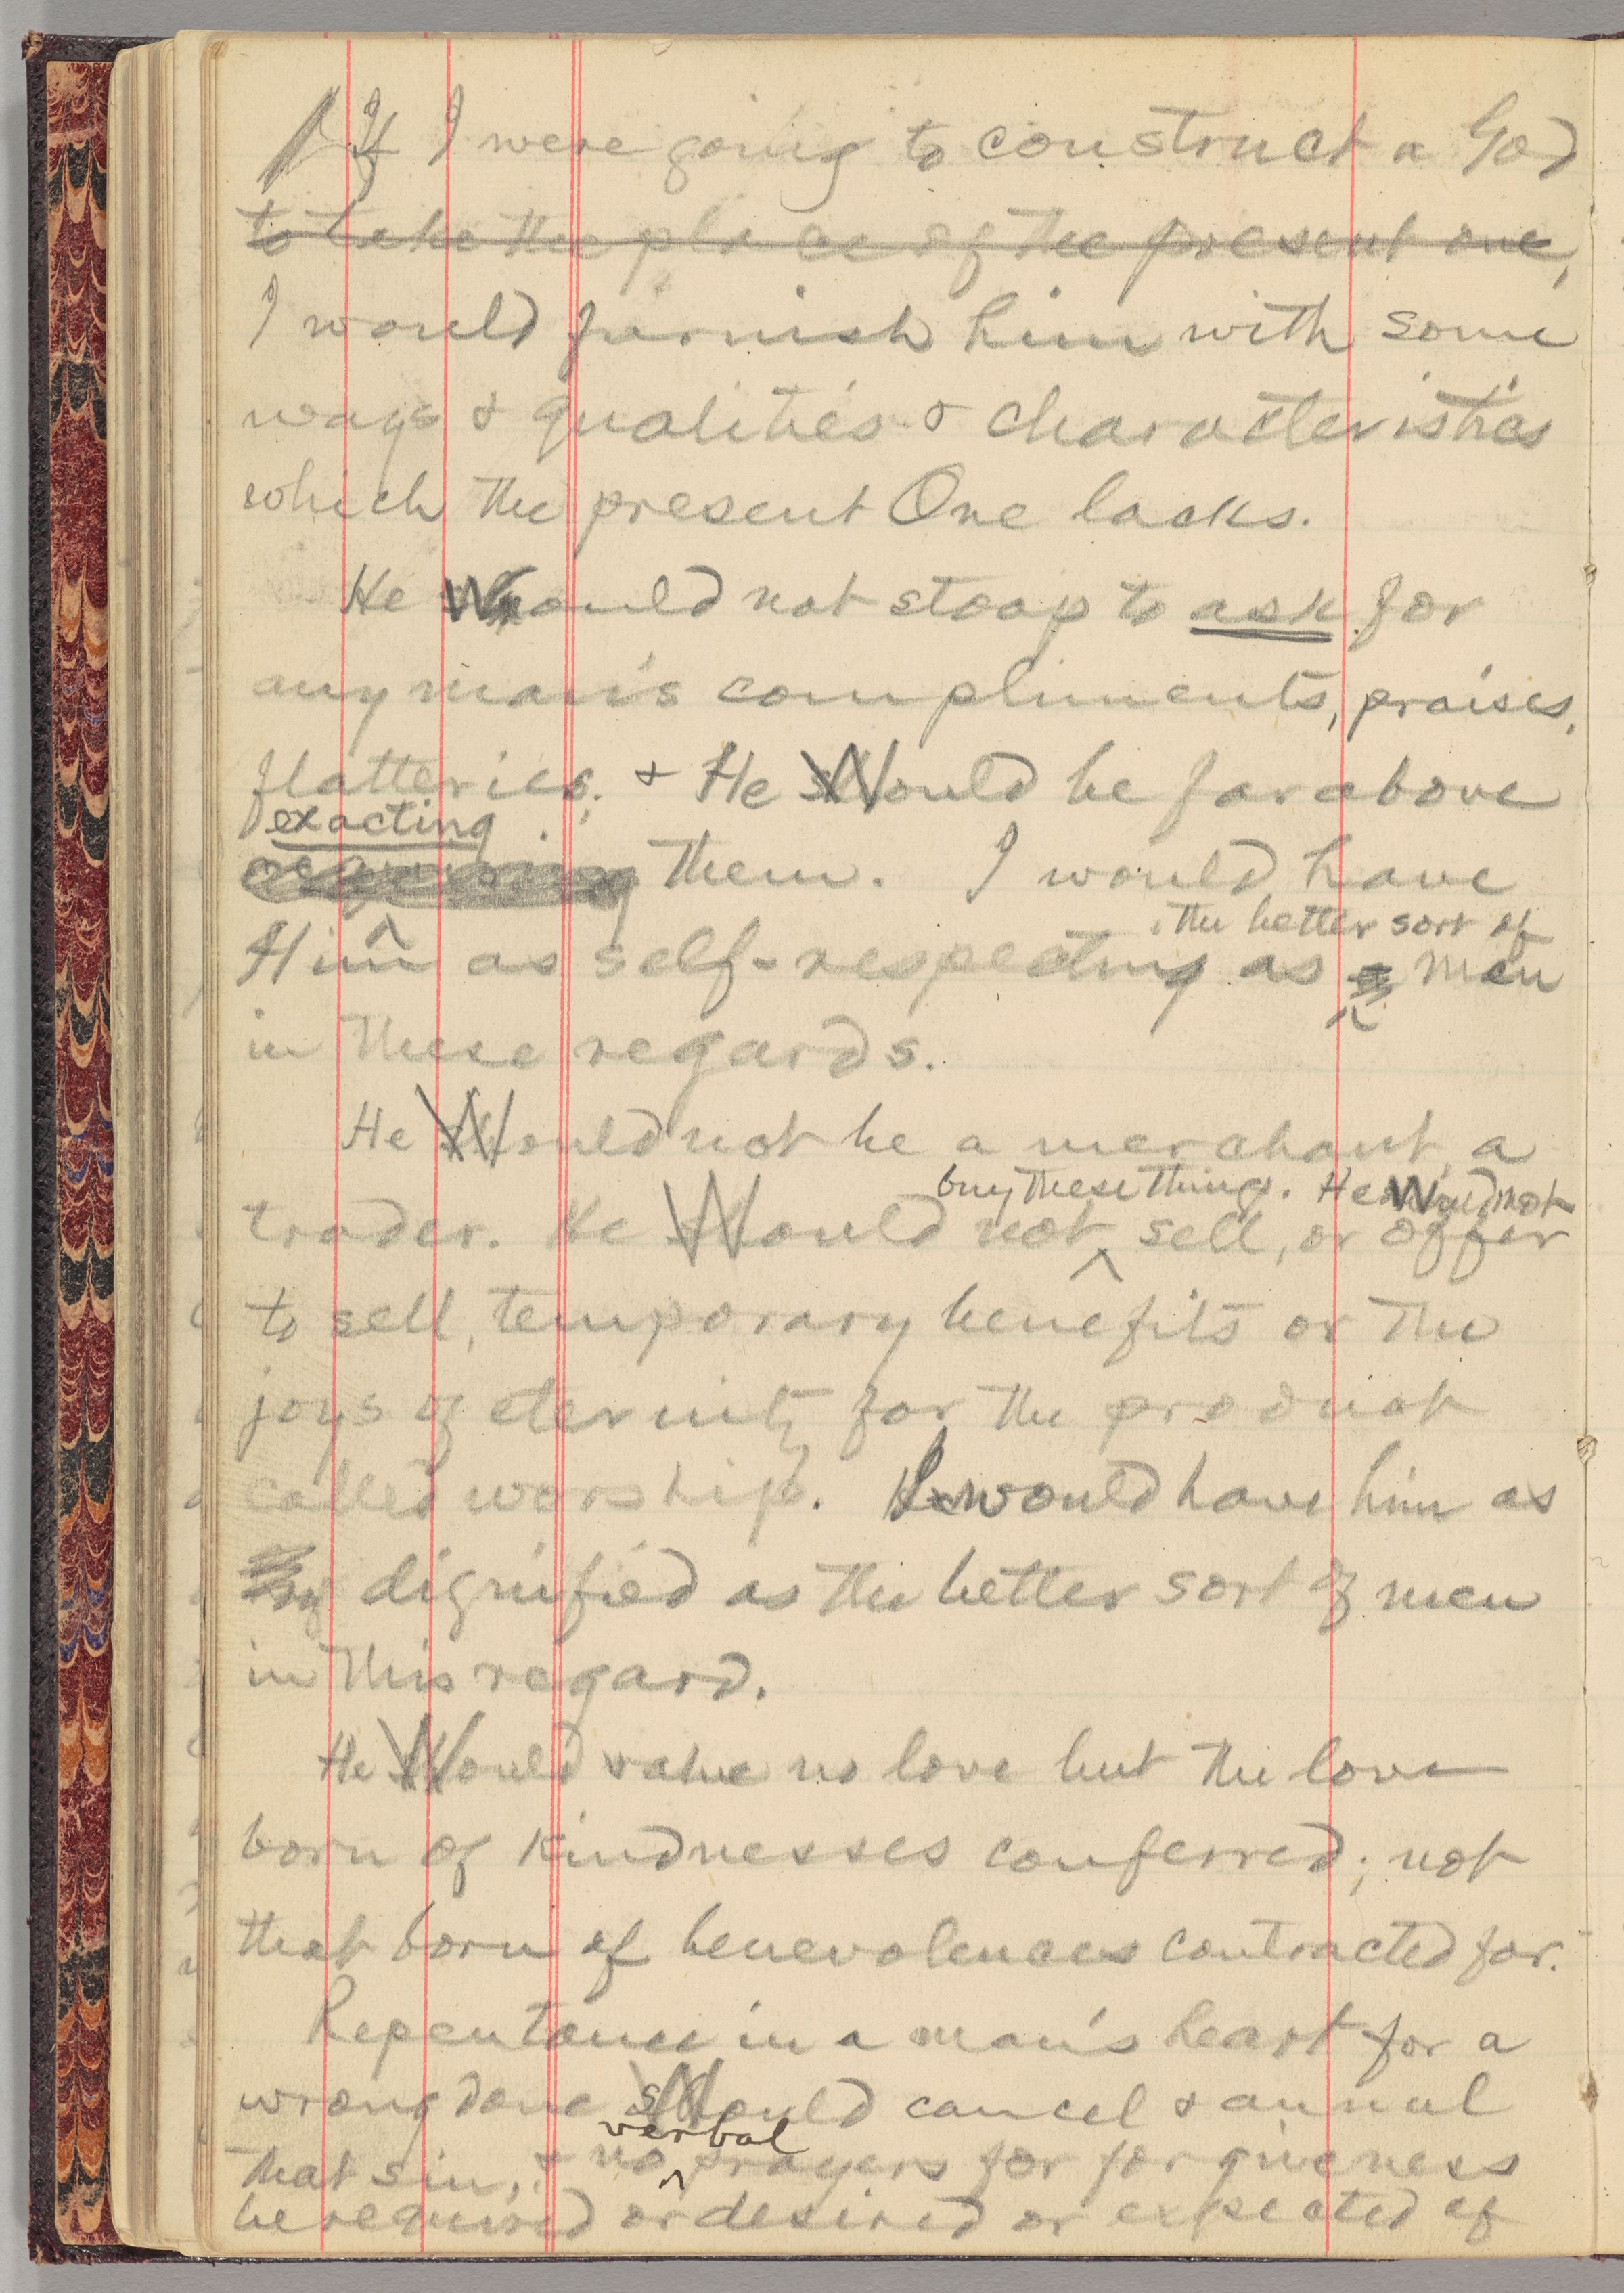 If I were going to construct a God
to take the place of the present one,
I would furnish him with some
ways & qualities & characteristics
which the present One lacks.
He Would not stoop to ask for
any man's compliments, praises,
flatteries; & He Would be far above
exacting
requiring them. I would have
the better sort of
Him as self-respecting as a man
in these regards.
He Would not be a merchant, a
buy these things. He Would not
trader. He Would not sell, or offer
to sell, temporary benefits or the
joys of eternity for the product
called worship. I would have him as
dignified as the better sort of men
in this regard.
He Would value no love but the love
born of kindnesses conferred; not
that born of benevolences contracted for.
Repentance in a man's heart for a
wrong done Should cancel & annul
verbal
that sin, & no prayers for forgiveness
be required or desired or expected of